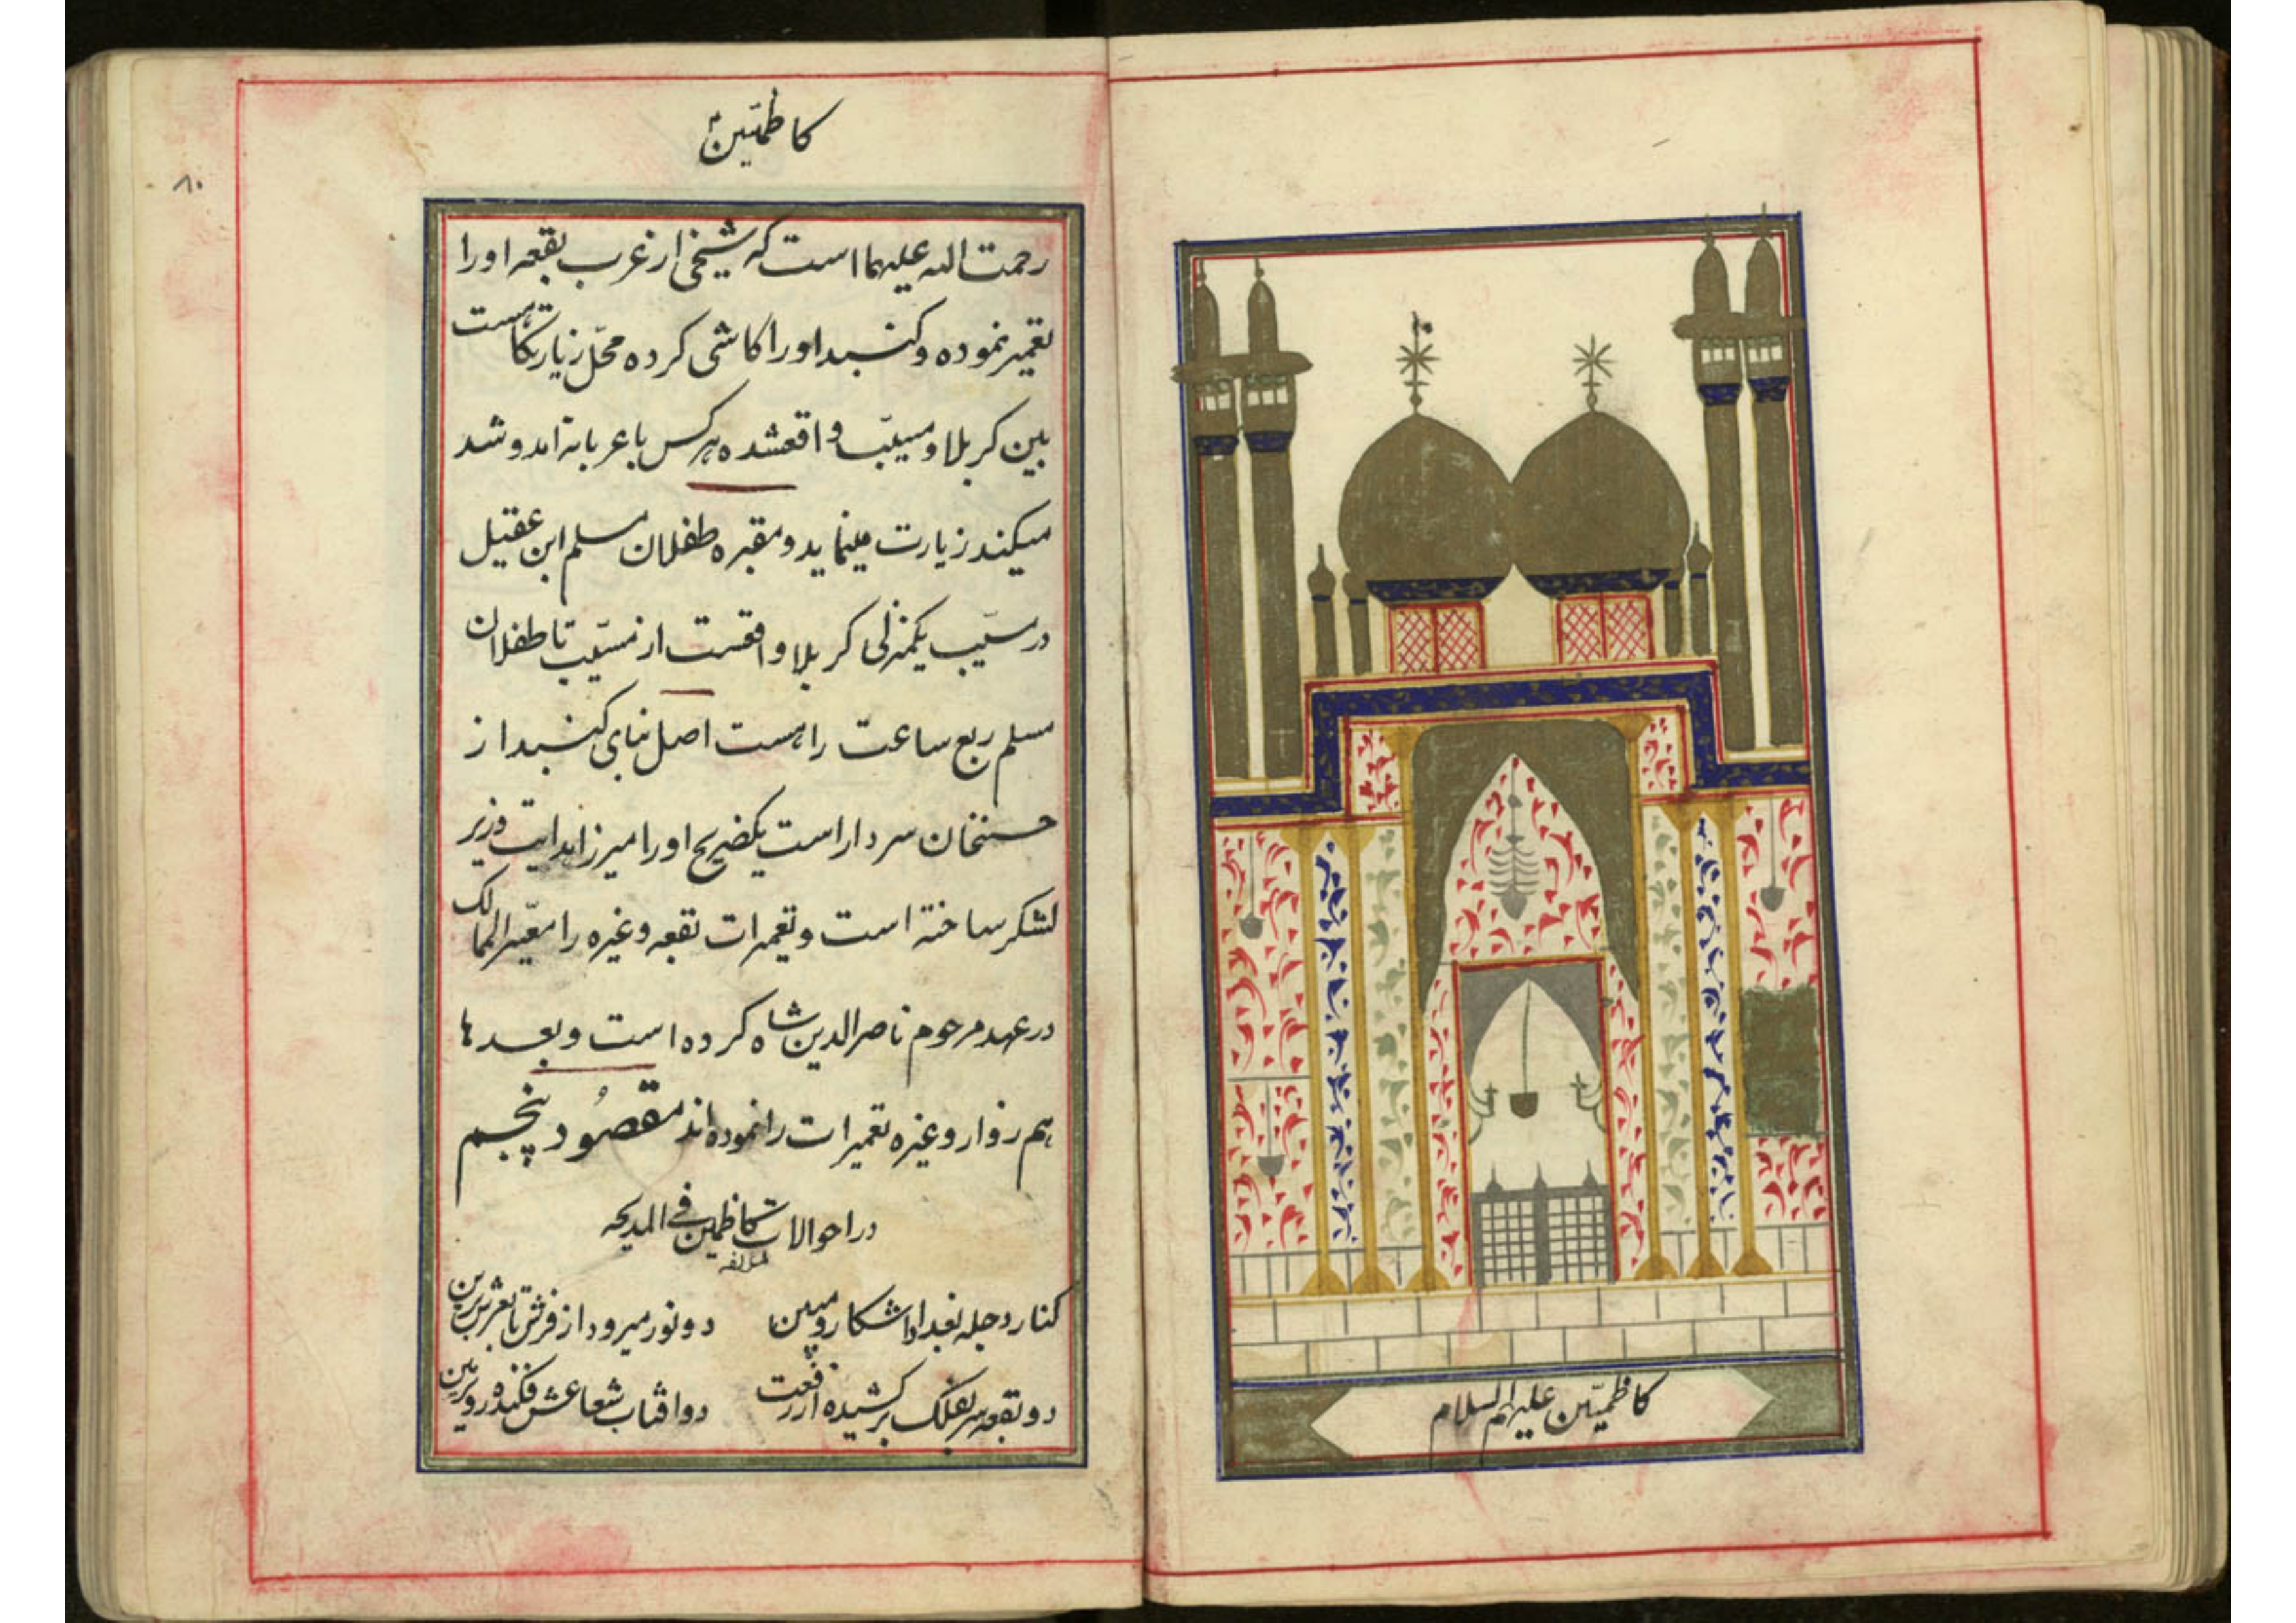 کاظمین
۸۰
رحمت الله علیهما است که شیخی از عرب بقعه او را
تعمیر نموده و کنبد او را کاشی کرده محل زیارتکاست
بین کربلا و مسیب واقعشده هر کس با عربانه آمد و شد
میکند زیارت مینماید و مقبره طفلان مسلم ابن عقیل
در مسیب یکمنزلی کربلا واقعست از مسیب تا طفلان
مسلم ربع ساعت راهست اصل بنای کنبد از
حسنخان سردار است یکضریح او را میرزا هدایت وزیر
لشکر ساخته است و تعمیرات بقعه و غیره را معیر الممالک
در عهد مرحوم ناصرالدین شاه کرده است و بعدها
هم زوار و غیره تعمیرات را نموده‌اند مقصود پنجم
در احوالات کاظمین فی المدیحه
لمؤلفه
کنار دجله بغداد آشکار و مبین دو نور میرود از فرش تا بعرش برین
دو بقعه سر بفلک برکشیده از رفعت دو افتاب شعاعش فکنده روی زمین
کاظمیین علیهم السلام